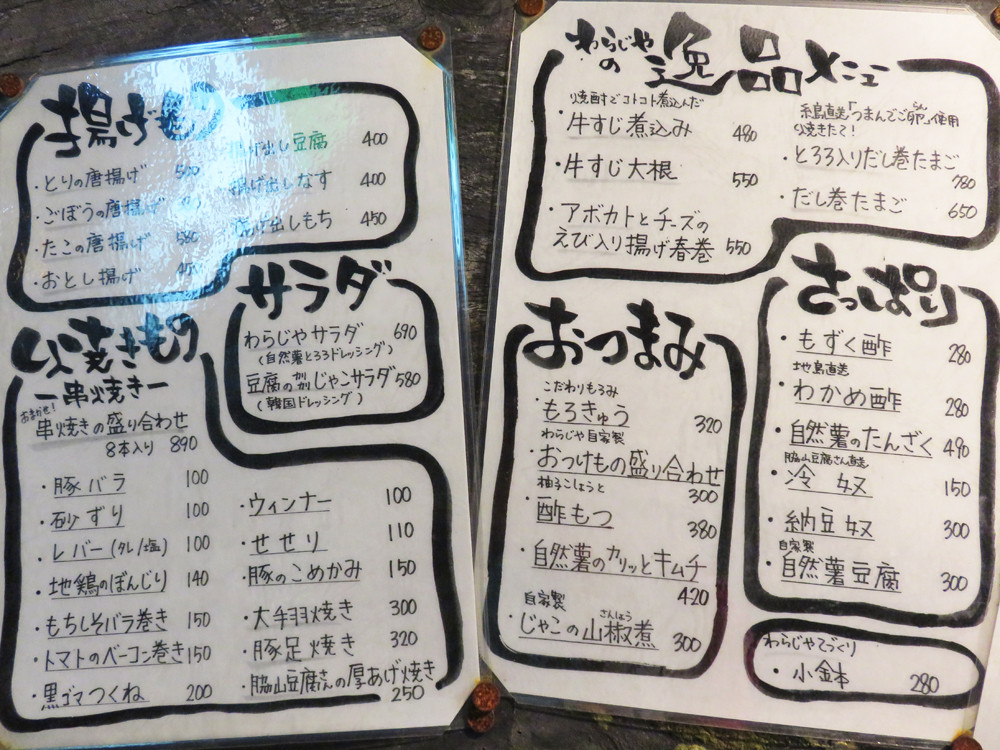 揚げもの
・とりの唐揚げ 500
・ごぼうの唐揚げ
・たこの唐揚げ 580
・おとし揚げ
揚げ出し豆腐 400
揚げ出しなす 400
揚げ出しもち 450
サラダ
わらじやサラダ 690
(自然薯とろろドレッシング)
豆腐の じゃこサラダ 580
(韓国ドレッシング)
焼きもの
ー串焼きー
おまかせ!
串焼きの盛り合わせ
8本入り 890
・豚バラ 100
・砂ずり 100
・レバー(タレ/塩) 100
・地鶏のぼんじり 140
・もちしそバラ巻き 150
・トマトのベーコン巻き 150
・黒ゴマつくね 200
・ウィンナー 100
・せせり 110
・豚のこめかみ 150
・大手羽焼き 300
・豚足焼き 320
・脇山豆腐さんの厚あげ焼き
250
わらじやの逸品メニュー
焼酎でコトコト煮込んだ
・牛すじ煮込み 480
・牛すじ大根 550
・アボカドとチーズの
えび入り揚げ春巻 550
糸島直送「つまんでご卵」使用
焼きたて!
・とろろ入りだし巻たまご
780
・だし巻たまご 650
おつまみ
こだわりもろみ
・もろきゅう 320
わらじや自家製
・おつけもの盛り合わせ
300
柚子こしょうと
・酢もつ 380
・自然薯のカリッとキムチ
420
自家製
・じゃこの山椒煮 300
さんしょう
さっぱり
・もずく酢 280
地島直送
・わかめ酢 280
・自然薯のたんざく 490
脇山豆腐さん直送
・冷奴 150
・納豆奴 300
自家製
・自然薯豆腐 300
わらじやてづくり
・小金本 280